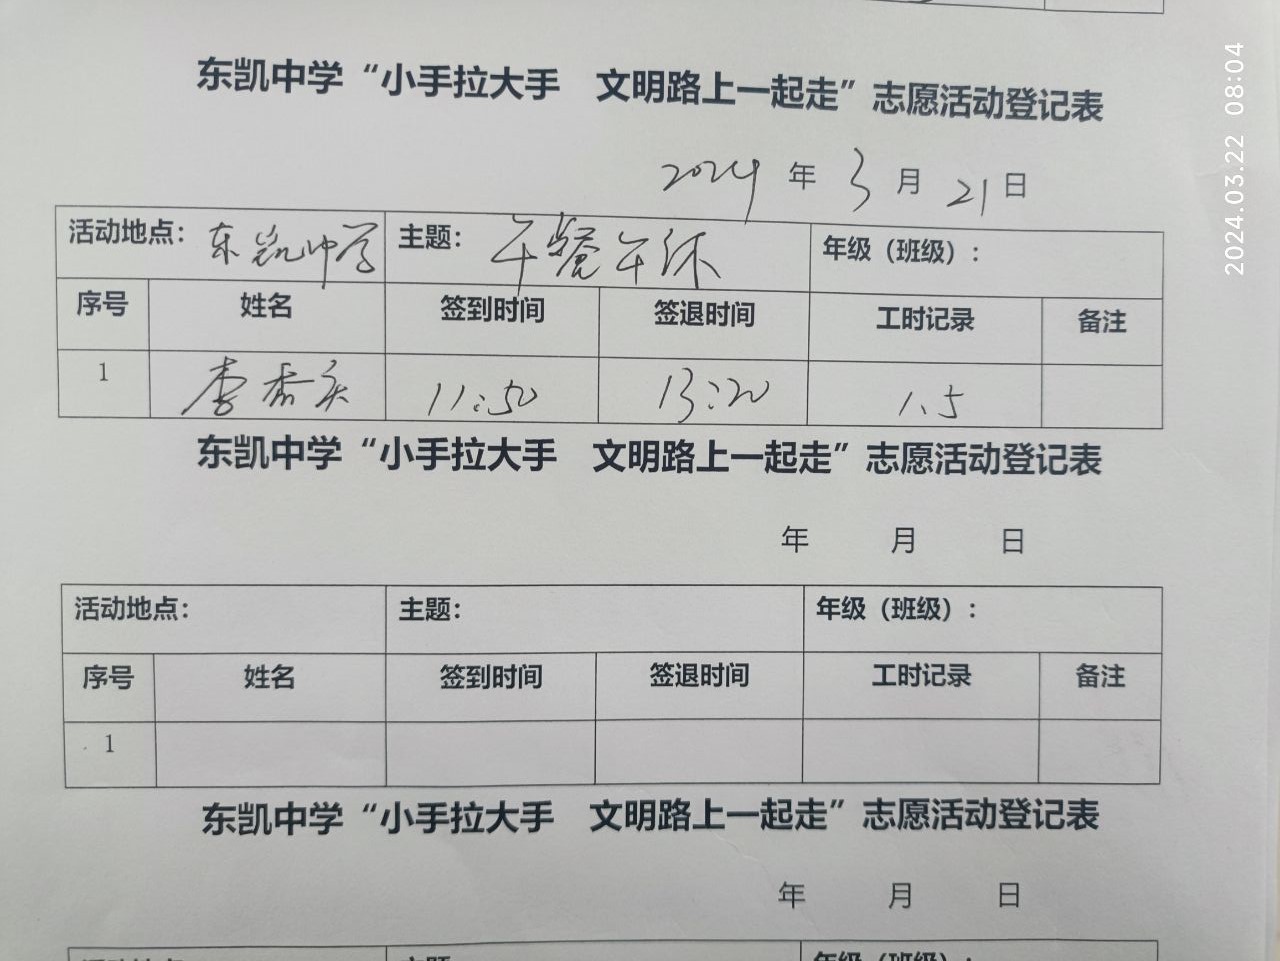 东凯中学“小手拉大手 文明路上一起走”志愿活动登记表
2024 年 3 月 21 日
活动地点： 东凯中学 主题： 午餐午休 年级（班级）：
序号 姓名 签到时间 签退时间 工时记录 备注
1 李 11:50 13:20 1.5
东凯中学“小手拉大手 文明路上一起走”志愿活动登记表
年 月 日
活动地点： 主题： 年级（班级）：
序号 姓名 签到时间 签退时间 工时记录 备注
1
东凯中学“小手拉大手 文明路上一起走”志愿活动登记表
年 月 日
活动地点： 主题： 年级（班级）：
2024.03.22 08:04